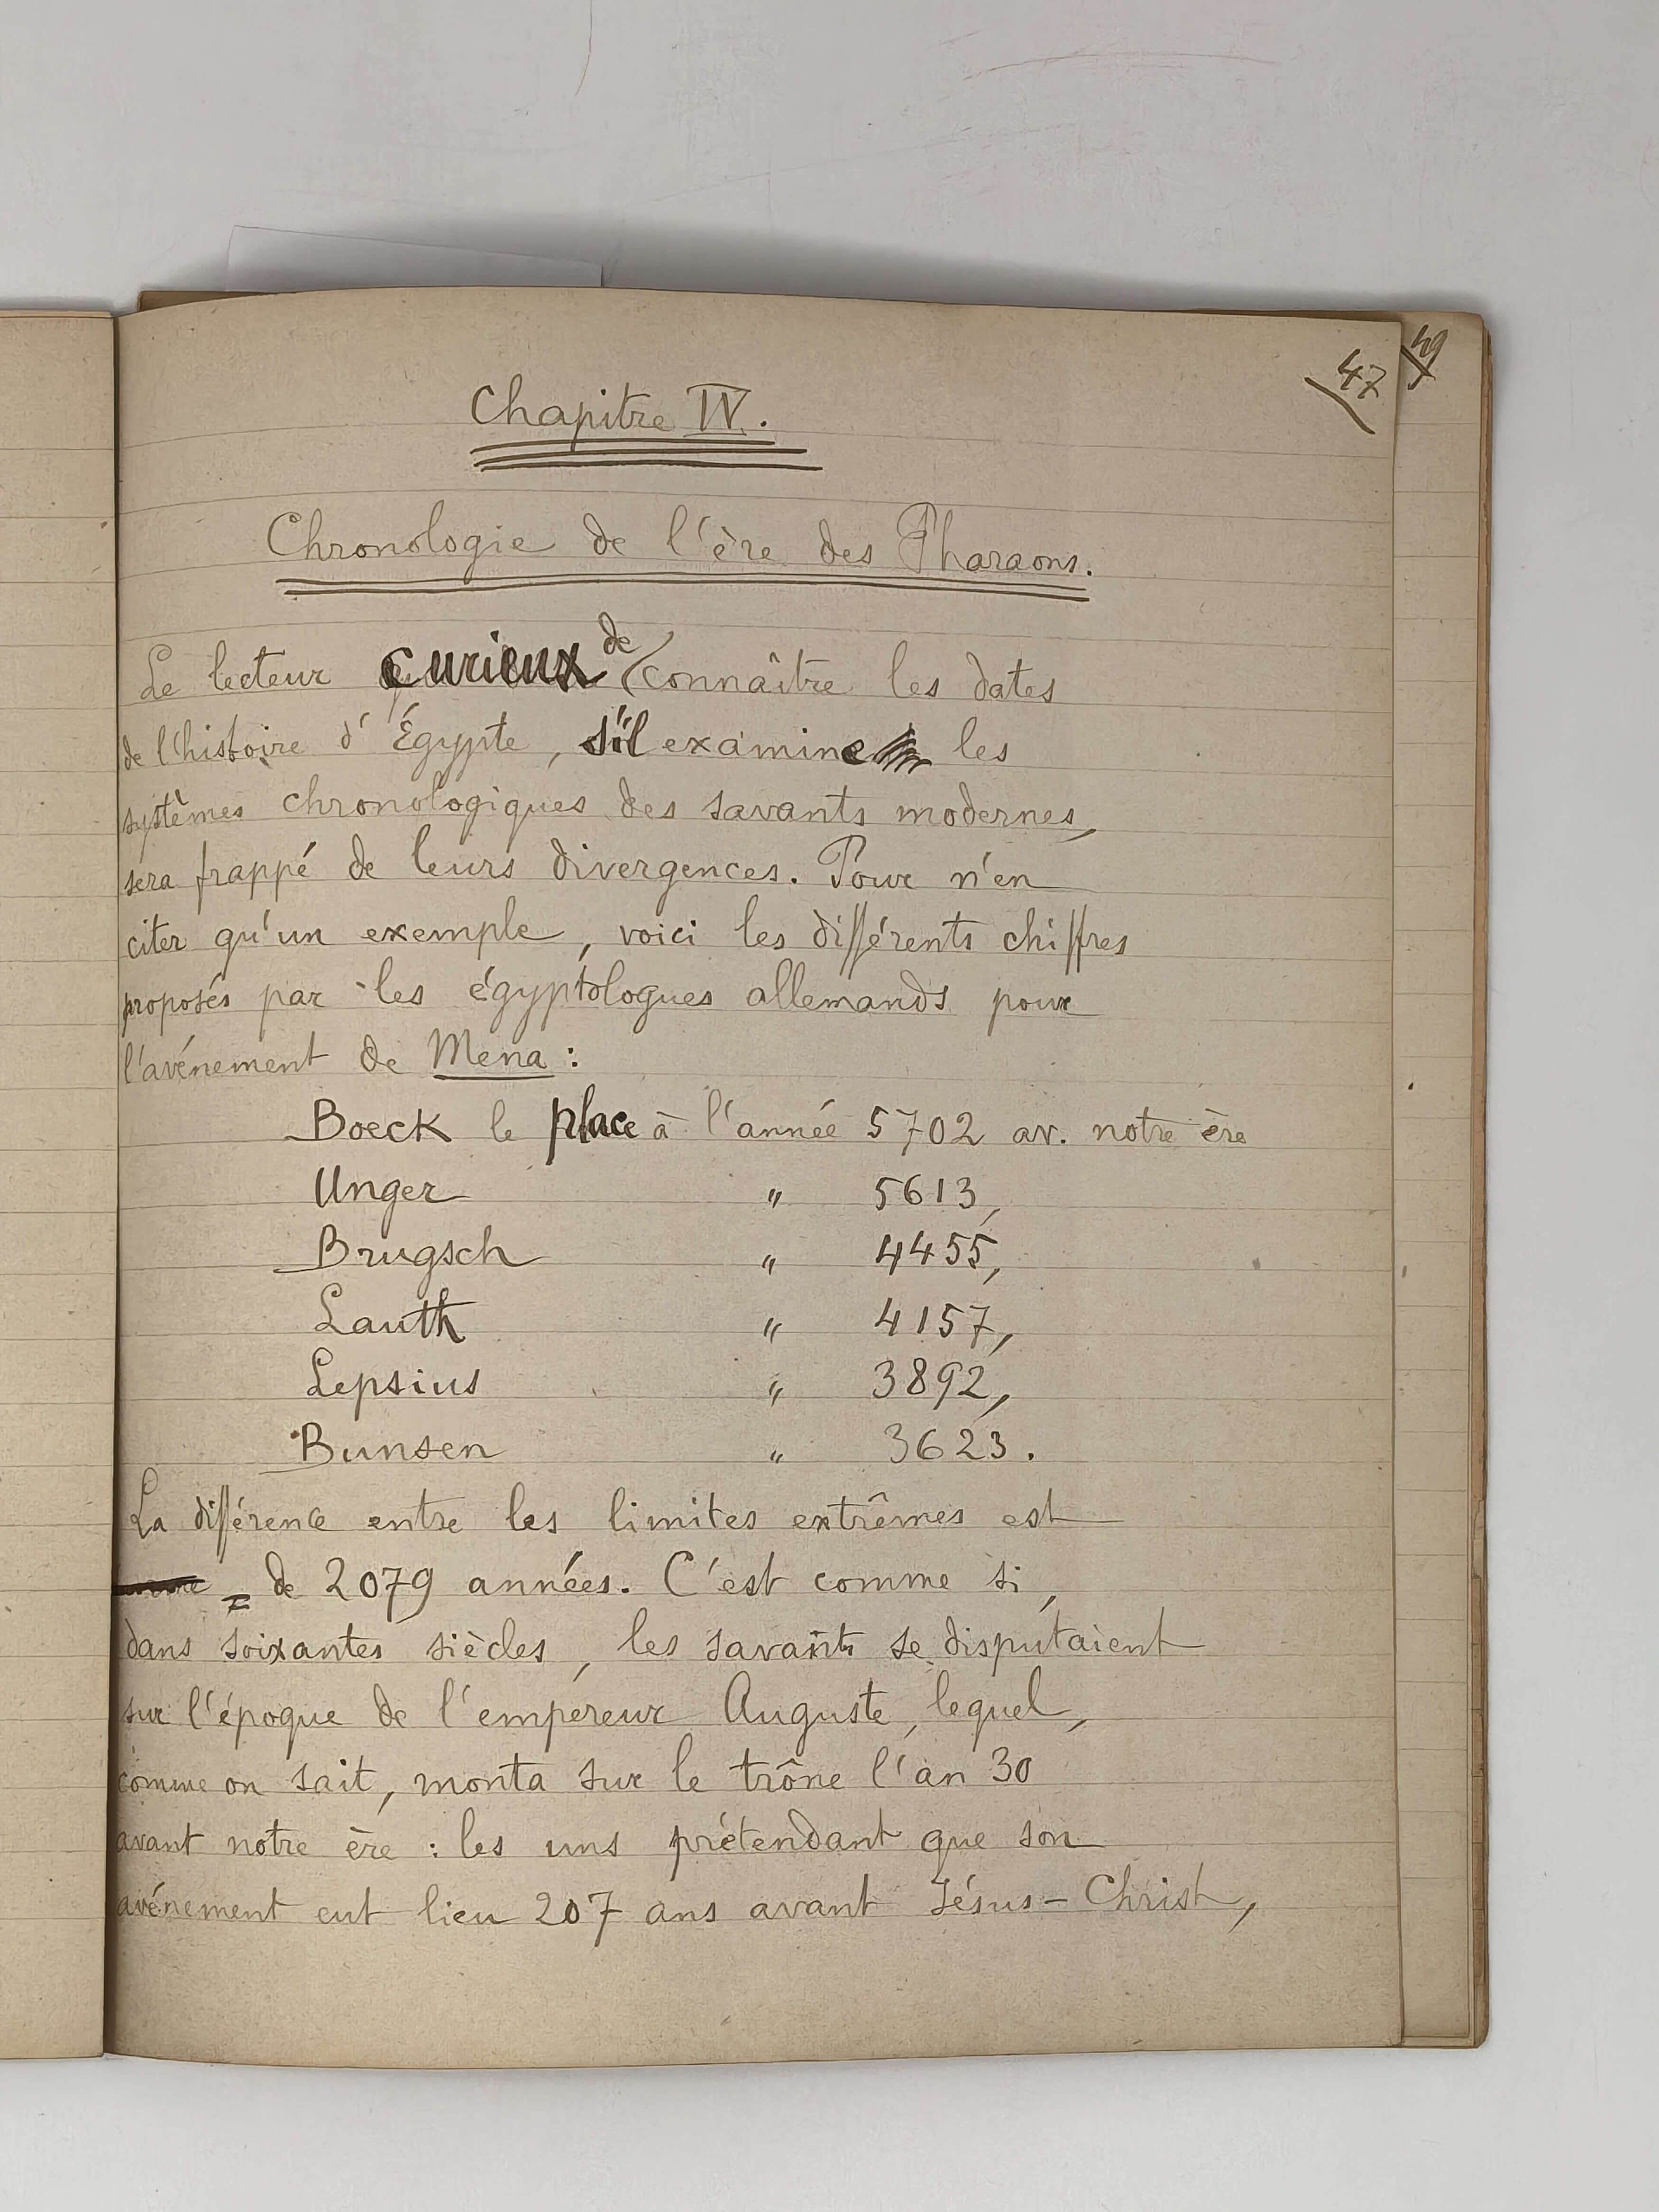 47
49
Chapitre IV.
Chronologie de l'ère des Pharaons.
Le lecteur curieux de connaître les dates
de l'histoire d'Égypte, s'il examine les
systèmes chronologiques des savants modernes,
sera frappé de leurs divergences. Pour n'en
citer qu'un exemple, voici les différents chiffres
proposés par les égyptologues allemands pour
l'avénement de Mena :
Boeck le place à l'année 5702 av. notre ère
Unger " 5613,
Brugsch " 4455,
Lauth " 4157,
Lepsius " 3892,
Bunsen " 3623.
La différence entre les limites extrêmes est
de 2079 années. C'est comme si,
dans soixantes siècles, les savants se disputaient
sur l'époque de l'empereur Auguste, lequel,
comme on sait, monta sur le trône l'an 30
avant notre ère : les uns prétendant que son
avénement eut lieu 207 ans avant Jésus-Christ,